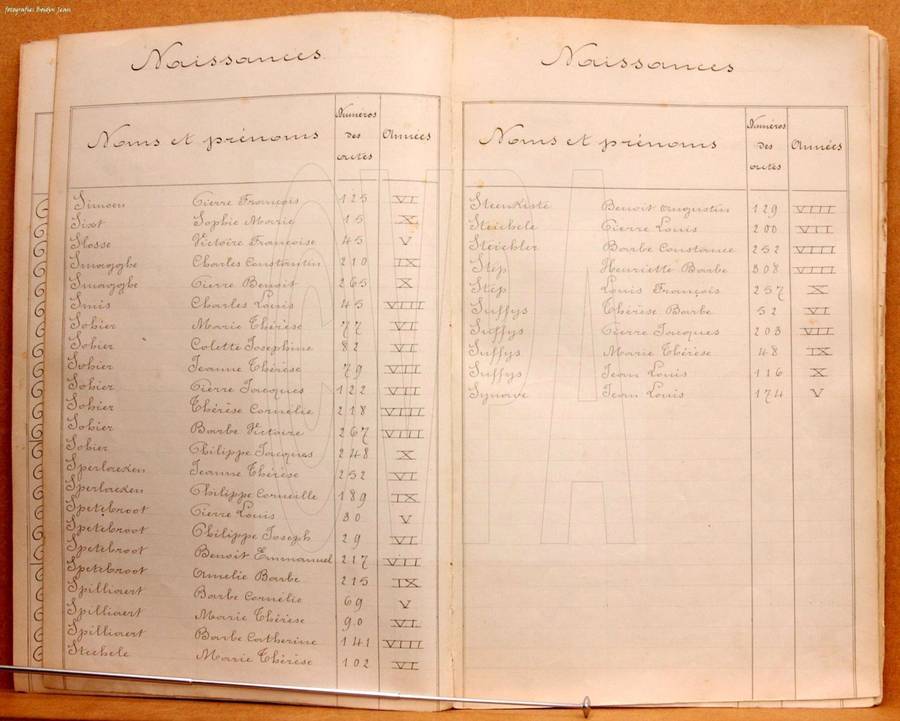 fotografie: Bedyn Jean
Naissances
Noms et prénoms Numéros des actes Années
Simoen Pierre François 125 VI
Sixt Sophie Marie 15 X
Slosse Victoire Françoise 45 V
Smagghe Charles Constantin 210 IX
Smagghe Pierre Benoit 265 X
Smis Charles Louis 45 VIII
Sohier Marie Thérèse 77 VI
Sohier Colette Josephine 82 VI
Sohier Jeanne Thérèse 79 VII
Sohier Pierre Jacques 122 VII
Sohier Thérèse Cornélie 218 VIII
Sohier Barbe Victoire 267 VIII
Sohier Philippe Jacques 248 X
Sperlaeken Jeanne Thérèse 252 VI
Sperlaeken Philippe Corneille 189 IX
Spetebroot Pierre Louis 30 V
Spetebroot Philippe Joseph 29 VI
Spetebroot Benoit Emmanuel 217 VII
Spetebroot Amelie Barbe 215 IX
Spilliaert Barbe Cornélie 69 V
Spilliaert Marie Thérèse 90 VI
Spilliaert Barbe Catherine 141 VIII
Stechele Marie Thérèse 102 VI
Naissances
Noms et prénoms Numéros des actes Années
Steenkiste Benoit Augustin 129 VIII
Steichele Pierre Louis 200 VII
Barbe Constance 252 VIII
Stip Henriette Barbe 308 VIII
Stip Louis François 257 X
Suffys Thérèse Barbe 52 VI
Suffys Pierre Jacques 203 VII
Suffys Marie Thérèse 48 IX
Suffys Jean Louis 116 X
Synave Jean Louis 174 V